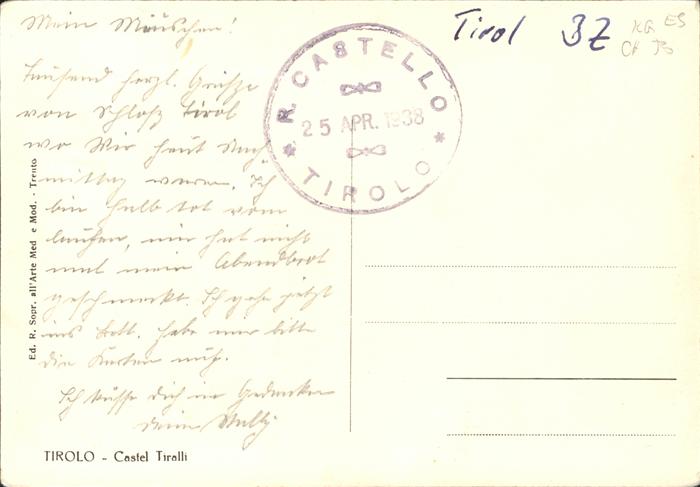 Mein Mäuschen!
Tausend herzl. Grüße
von Schloß Tirol
wo Wir heut Nach-
mittag waren. Ich
bin halb tot vom
laufen, mir hat nicht
mal mein Abendbrot
geschmeckt. Ich gehe jetzt
ins Bett. Habe nur bitte
die Karten auf.
Ich küsse Dich in Gedanken
deine Willy
R. CASTELLO
25 APR. 1938
TIROLO
Tirol BZ
KG ES
Ed. R. Sopr. all'Arte Med e Mod. - Trento
TIROLO - Castel Tiralli